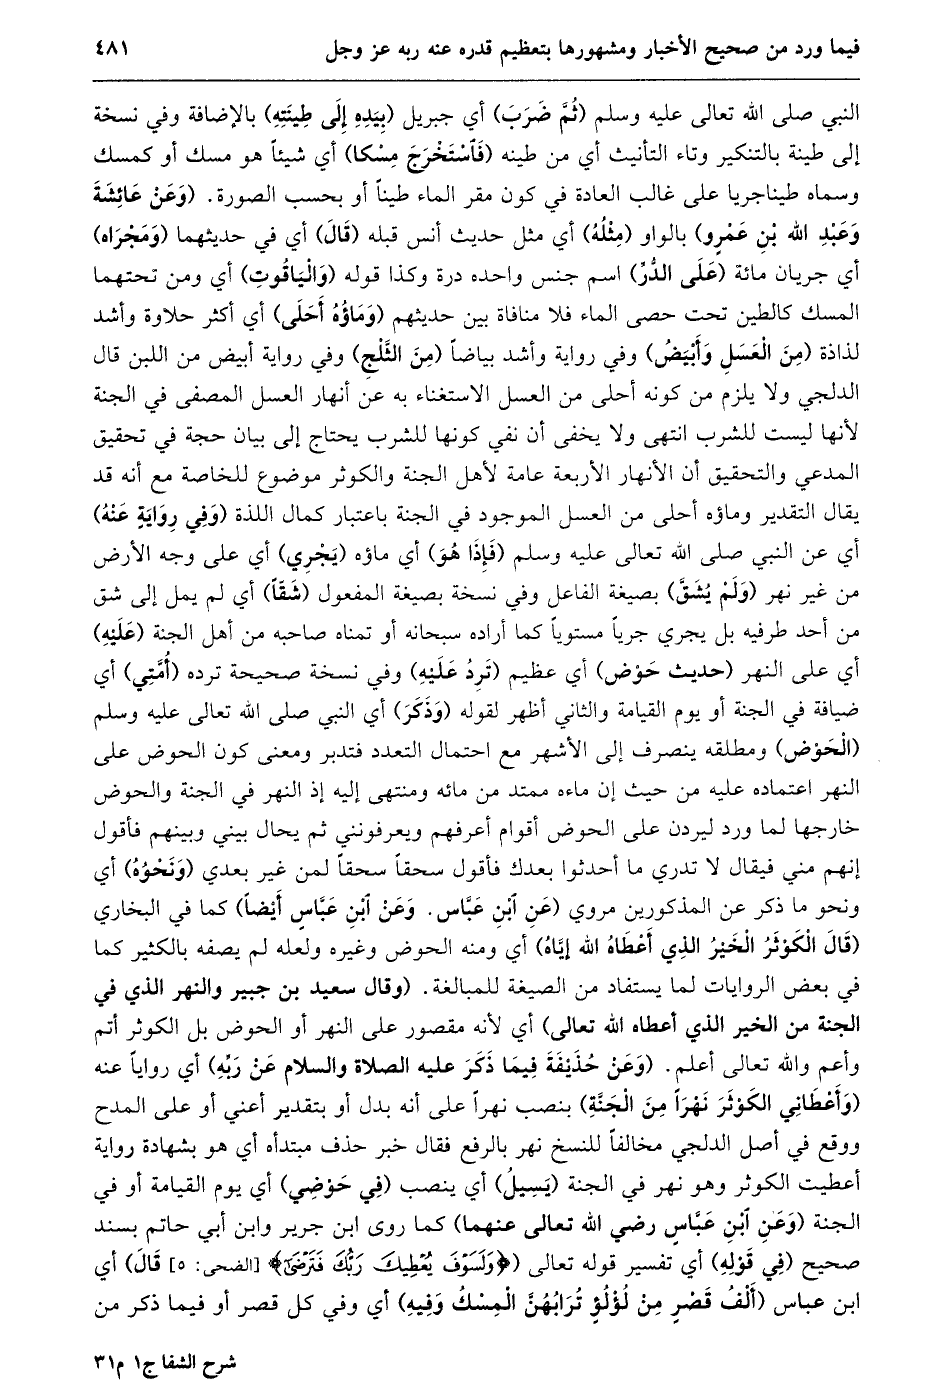 فيما ورد من صحيح الأخبار ومشهورها بتعظيم قدره عنه ربه عز وجل ٤٨١
النبي صلى الله تعالى عليه وسلم (ثُمَّ ضَرَبَ) أي جبريل (بِيَدِهِ إِلَى طِينَتِهِ) بالإضافة وفي نسخة
إلى طينة بالتنكير وتاء التأنيث أي من طينه (فَاسْتَخْرَجَ مِسْكا) أي شيئاً هو مسك أو كمسك
وسماه طيناجريا على غالب العادة في كون مقر الماء طيناً أو بحسب الصورة. (وَعَنْ عَائِشَةَ
وَعَبْدِ الله بْنِ عَمْرٍو) بالواو (مِثْلُهُ) أي مثل حديث أنس قبله (قَالَ) أي في حديثهما (وَمَجْرَاه)
أي جريان مائة (عَلَى الدُّرِّ) اسم جنس واحده درة وكذا قوله (وَالْيَاقُوتِ) أي ومن تحتهما
المسك كالطين تحت حصى الماء فلا منافاة بين حديثهم (وَمَاؤُهُ أَحْلَى) أي أكثر حلاوة وأشد
لذاذة (مِنَ الْعَسَلِ وَأَبْيَضُ) وفي رواية وأشد بياضاً (مِنَ الثَّلْجِ) وفي رواية أبيض من اللبن قال
الدلجي ولا يلزم من كونه أحلى من العسل الاستغناء به عن أنهار العسل المصفى في الجنة
لأنها ليست للشرب انتهى ولا يخفى أن نفي كونها للشرب يحتاج إلى بيان حجة في تحقيق
المدعي والتحقيق أن الأنهار الأربعة عامة لأهل الجنة والكوثر موضوع للخاصة مع أنه قد
يقال التقدير وماؤه أحلى من العسل الموجود في الجنة باعتبار كمال اللذة (وَفِي رِوَايَةٍ عَنْهُ)
أي عن النبي صلى الله تعالى عليه وسلم (فَإِذَا هُوَ) أي ماؤه (يَجْرِي) أي على وجه الأرض
من غير نهر (وَلَمْ يُشَقَّ) بصيغة الفاعل وفي نسخة بصيغة المفعول (شَقّاً) أي لم يمل إلى شق
من أحد طرفيه بل يجري جرياً مستوياً كما أراده سبحانه أو تمناه صاحبه من أهل الجنة (عَلَيْهِ)
أي على النهر (حديث حَوْض) أي عظيم (تَرِدُ عَلَيْهِ) وفي نسخة صحيحة ترده (أُمَّتِي) أي
ضيافة في الجنة أو يوم القيامة والثاني أظهر لقوله (وَذَكَرَ) أي النبي صلى الله تعالى عليه وسلم
(الْحَوْض) ومطلقه ينصرف إلى الأشهر مع احتمال التعدد فتدبر ومعنى كون الحوض على
النهر اعتماده عليه من حيث إن ماءه ممتد من مائه ومنتهى إليه إذ النهر في الجنة والحوض
خارجها لما ورد ليردن على الحوض أقوام أعرفهم ويعرفونني ثم يحال بيني وبينهم فأقول
إنهم مني فيقال لا تدري ما أحدثوا بعدك فأقول سحقاً سحقاً لمن غير بعدي (وَنَحْوُهُ) أي
ونحو ما ذكر عن المذكورين مروي (عَنِ ابْنِ عَبَّاس. وَعَنْ ابْنِ عَبَّاسٍ أَيْضاً) كما في البخاري
(قَالَ الْكَوْثَرُ الْخَيْرُ الذِي أَعْطَاهُ الله إِيَّاهُ) أي ومنه الحوض وغيره ولعله لم يصفه بالكثير كما
في بعض الروايات لما يستفاد من الصيغة للمبالغة. (وقال سعيد بن جبير والنهر الذي في
الجنة من الخير الذي أعطاه الله تعالى) أي لأنه مقصور على النهر أو الحوض بل الكوثر أتم
وأعم والله تعالى أعلم. (وَعَنْ حُذَيْفَةَ فِيمَا ذَكَرَ عليه الصلاة والسلام عَنْ رَبِّهِ) أي رواياً عنه
(وَأَعْطَانِي الكَوْثَرَ نَهْرَاً مِنَ الْجَنَّةِ) بنصب نهراً على أنه بدل أو بتقدير أعني أو على المدح
ووقع في أصل الدلجي مخالفاً للنسخ نهر بالرفع فقال خبر حذف مبتدأه أي هو بشهادة رواية
أعطيت الكوثر وهو نهر في الجنة (يَسِيلُ) أي ينصب (فِي حَوْضِي) أي يوم القيامة أو في
الجنة (وَعَنِ ابْنِ عَبَّاسٍ رضي الله تعالى عنهما) كما روى ابن جرير وابن أبي حاتم بسند
صحيح (فِي قَوْلِهِ) أي تفسير قوله تعالى (﴿وَلَسَوْفَ يُعْطِيكَ رَبُّكَ فَتَرْضَىٰٓ﴾ [الضحى: ٥] قَالَ) أي
ابن عباس (أَلْفُ قَصْرٍ مِنْ لُؤْلُؤٍ تُرَابُهُنَّ الْمِسْكُ وَفِيهِ) أي وفي كل قصر أو فيما ذكر من
شرح الشفا ج١ م٣١